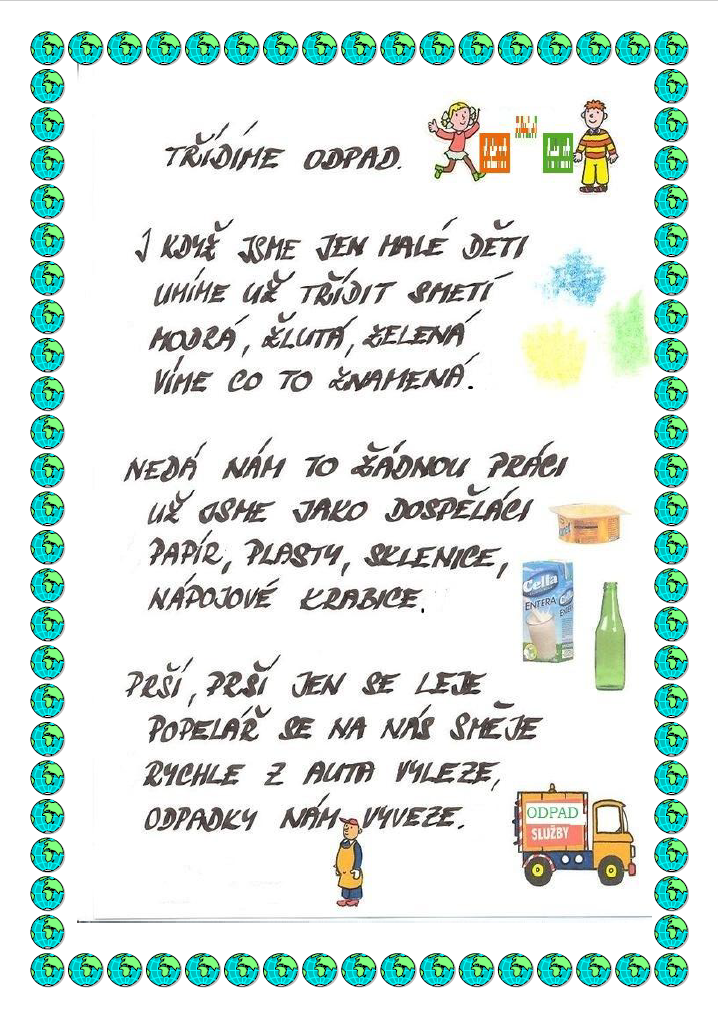 TŘÍDÍME ODPAD.
I KDYŽ JSME JEN MALÉ DĚTI
UMÍME UŽ TŘÍDIT SMETÍ
MODRÁ, ŽLUTÁ, ZELENÁ
VÍME CO TO ZNAMENÁ.
NEDÁ NÁM TO ŽÁDNOU PRÁCI
UŽ JSME JAKO DOSPĚLÁCI
PAPÍR, PLASTY, SKLENICE,
NÁPOJOVÉ KRABICE.
Cella
ENTERA
PRŠÍ, PRŠÍ JEN SE LEJE
POPELÁŘ SE NA NÁS SMĚJE
RYCHLE Z AUTA VYLEZE,
ODPADKY NÁM VYVEZE.
ODPAD
SLUŽBY